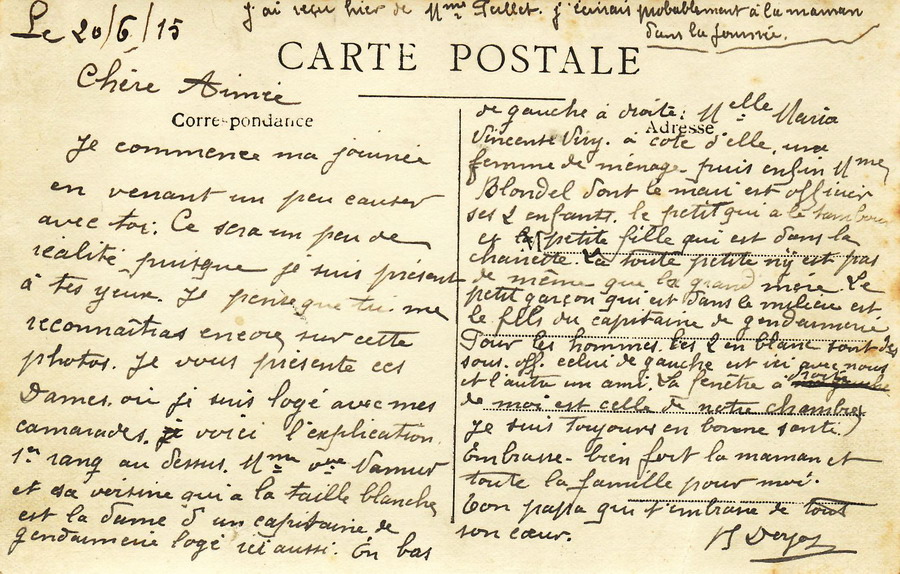 Le 20/6/15
j'ai reçu hier de Mme j'écrirais probablement à la maman
dans la journée.
CARTE POSTALE
Chère Aimée
Correspondance
Je commence ma journée
en venant un peu causer
avec toi. Ce sera un peu de
réalité puisque je suis présent
à tes yeux. Je pense que tu me
reconnaîtras encore sur cette
photos. Je vous présente ces
Dames. ou je suis logé avec mes
camarades. voici l'explication.
1er rang au dessus. Mme vve Namur
et sa voisine qui a la taille blanche
est la dame d'un capitaine de
gendarmerie logé ici aussi. En bas
Adresse
de gauche à droite: Melle Maria
Vincente Viry. à côté d'elle, une
femme de ménage. puis enfin Mme
Blondel dont le mari est officier
ses 2 enfants. le petit qui a le tambour
et la petite fille qui est dans la
charrette. La toute petite n'y est pas
de même que la grand mère. Le
petit garçon qui est dans le milieu est
le fils du capitaine de gendarmerie
Pour les hommes les 2 en blanc sont des
sous. off. celui de gauche est ici avec nous
et l'autre un ami. La fenêtre à droite
de moi est celle de notre chambre
Je suis toujours en bonne santé.
Embrasse-bien fort la maman et
toute la famille pour moi.
Ton papa qui t'embrasse de tout
son cœur.